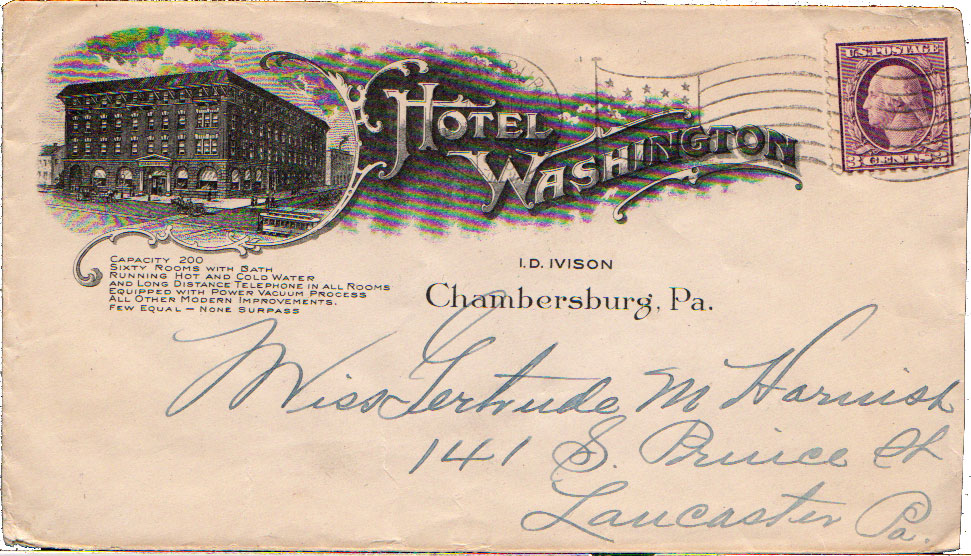 HOTEL
WASHINGTON
U.S. POSTAGE
3 CENTS 3
CAPACITY 200
SIXTY ROOMS WITH BATH
RUNNING HOT AND COLD WATER
AND LONG DISTANCE TELEPHONE IN ALL ROOMS
EQUIPPED WITH POWER VACUUM PROCESS
ALL OTHER MODERN IMPROVEMENTS.
FEW EQUAL — NONE SURPASS
I.D. IVISON
Chambersburg, Pa.
Miss Gertrude M Harnish
141 S. Prince St
Lancaster Pa.